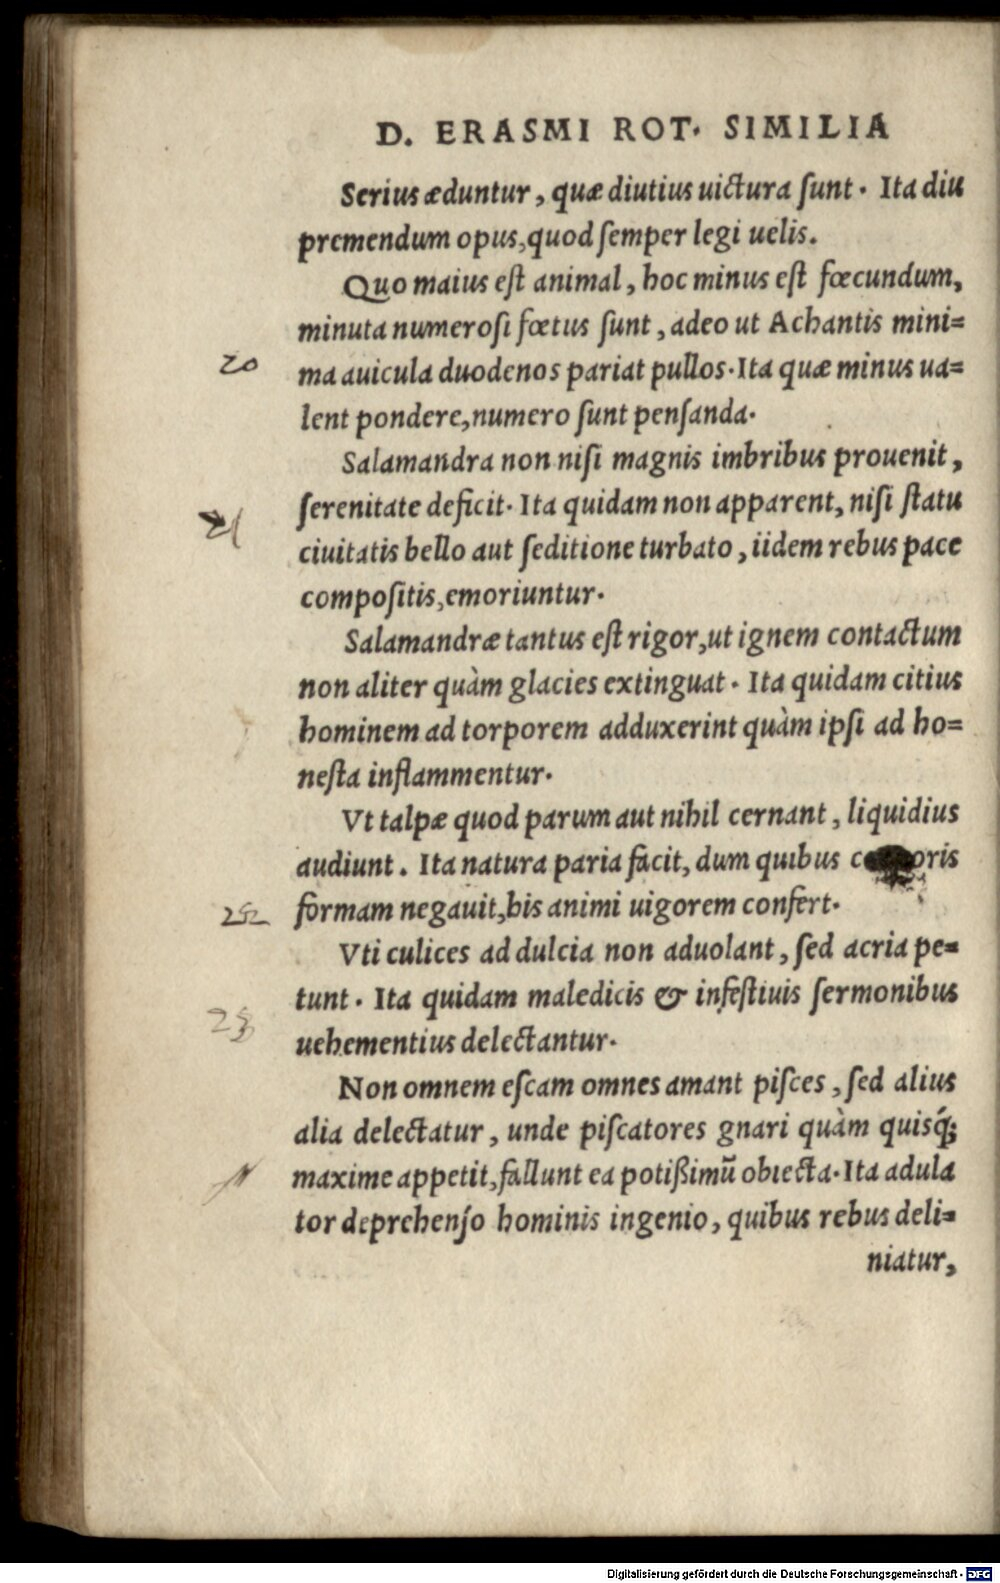 D. ERASMI ROT. SIMILIA
Serius æduntur, quæ diutius uictura ſunt. Ita diu
premendum opus, quod ſemper legi uelis.
Quo maius eſt animal, hoc minus eſt fœcundum,
minuta numeroſi fœtus ſunt, adeo ut Achantis mini=
20
ma auicula duodenos pariat pullos. Ita quæ minus ua=
lent pondere, numero ſunt penſanda.
Salamandra non niſi magnis imbribus prouenit,
ſerenitate deficit. Ita quidam non apparent, niſi ſtatu
21
ciuitatis bello aut ſeditione turbato, iidem rebus pace
compoſitis, emoriuntur.
Salamandræ tantus eſt rigor, ut ignem contactum
non aliter quàm glacies extinguat. Ita quidam citius
hominem ad torporem adduxerint quàm ipſi ad ho=
neſta inflammentur.
Vt talpæ quod parum aut nihil cernant, liquidius
audiunt. Ita natura paria facit, dum quibus c oris
22
formam negauit, his animi uigorem confert.
Vti culices ad dulcia non aduolant, ſed acria pe=
tunt. Ita quidam maledicis & infeſtiuis ſermonibus
23
uehementius delectantur.
Non omnem eſcam omnes amant piſces, ſed alius
alia delectatur, unde piſcatores gnari quàm quisq́;
maxime appetit, fallunt ea potißimū obiecta. Ita adula
tor deprehenſo hominis ingenio, quibus rebus deli=
niatur,
Digitalisierung gefördert durch die Deutsche Forschungsgemeinschaft - DFG